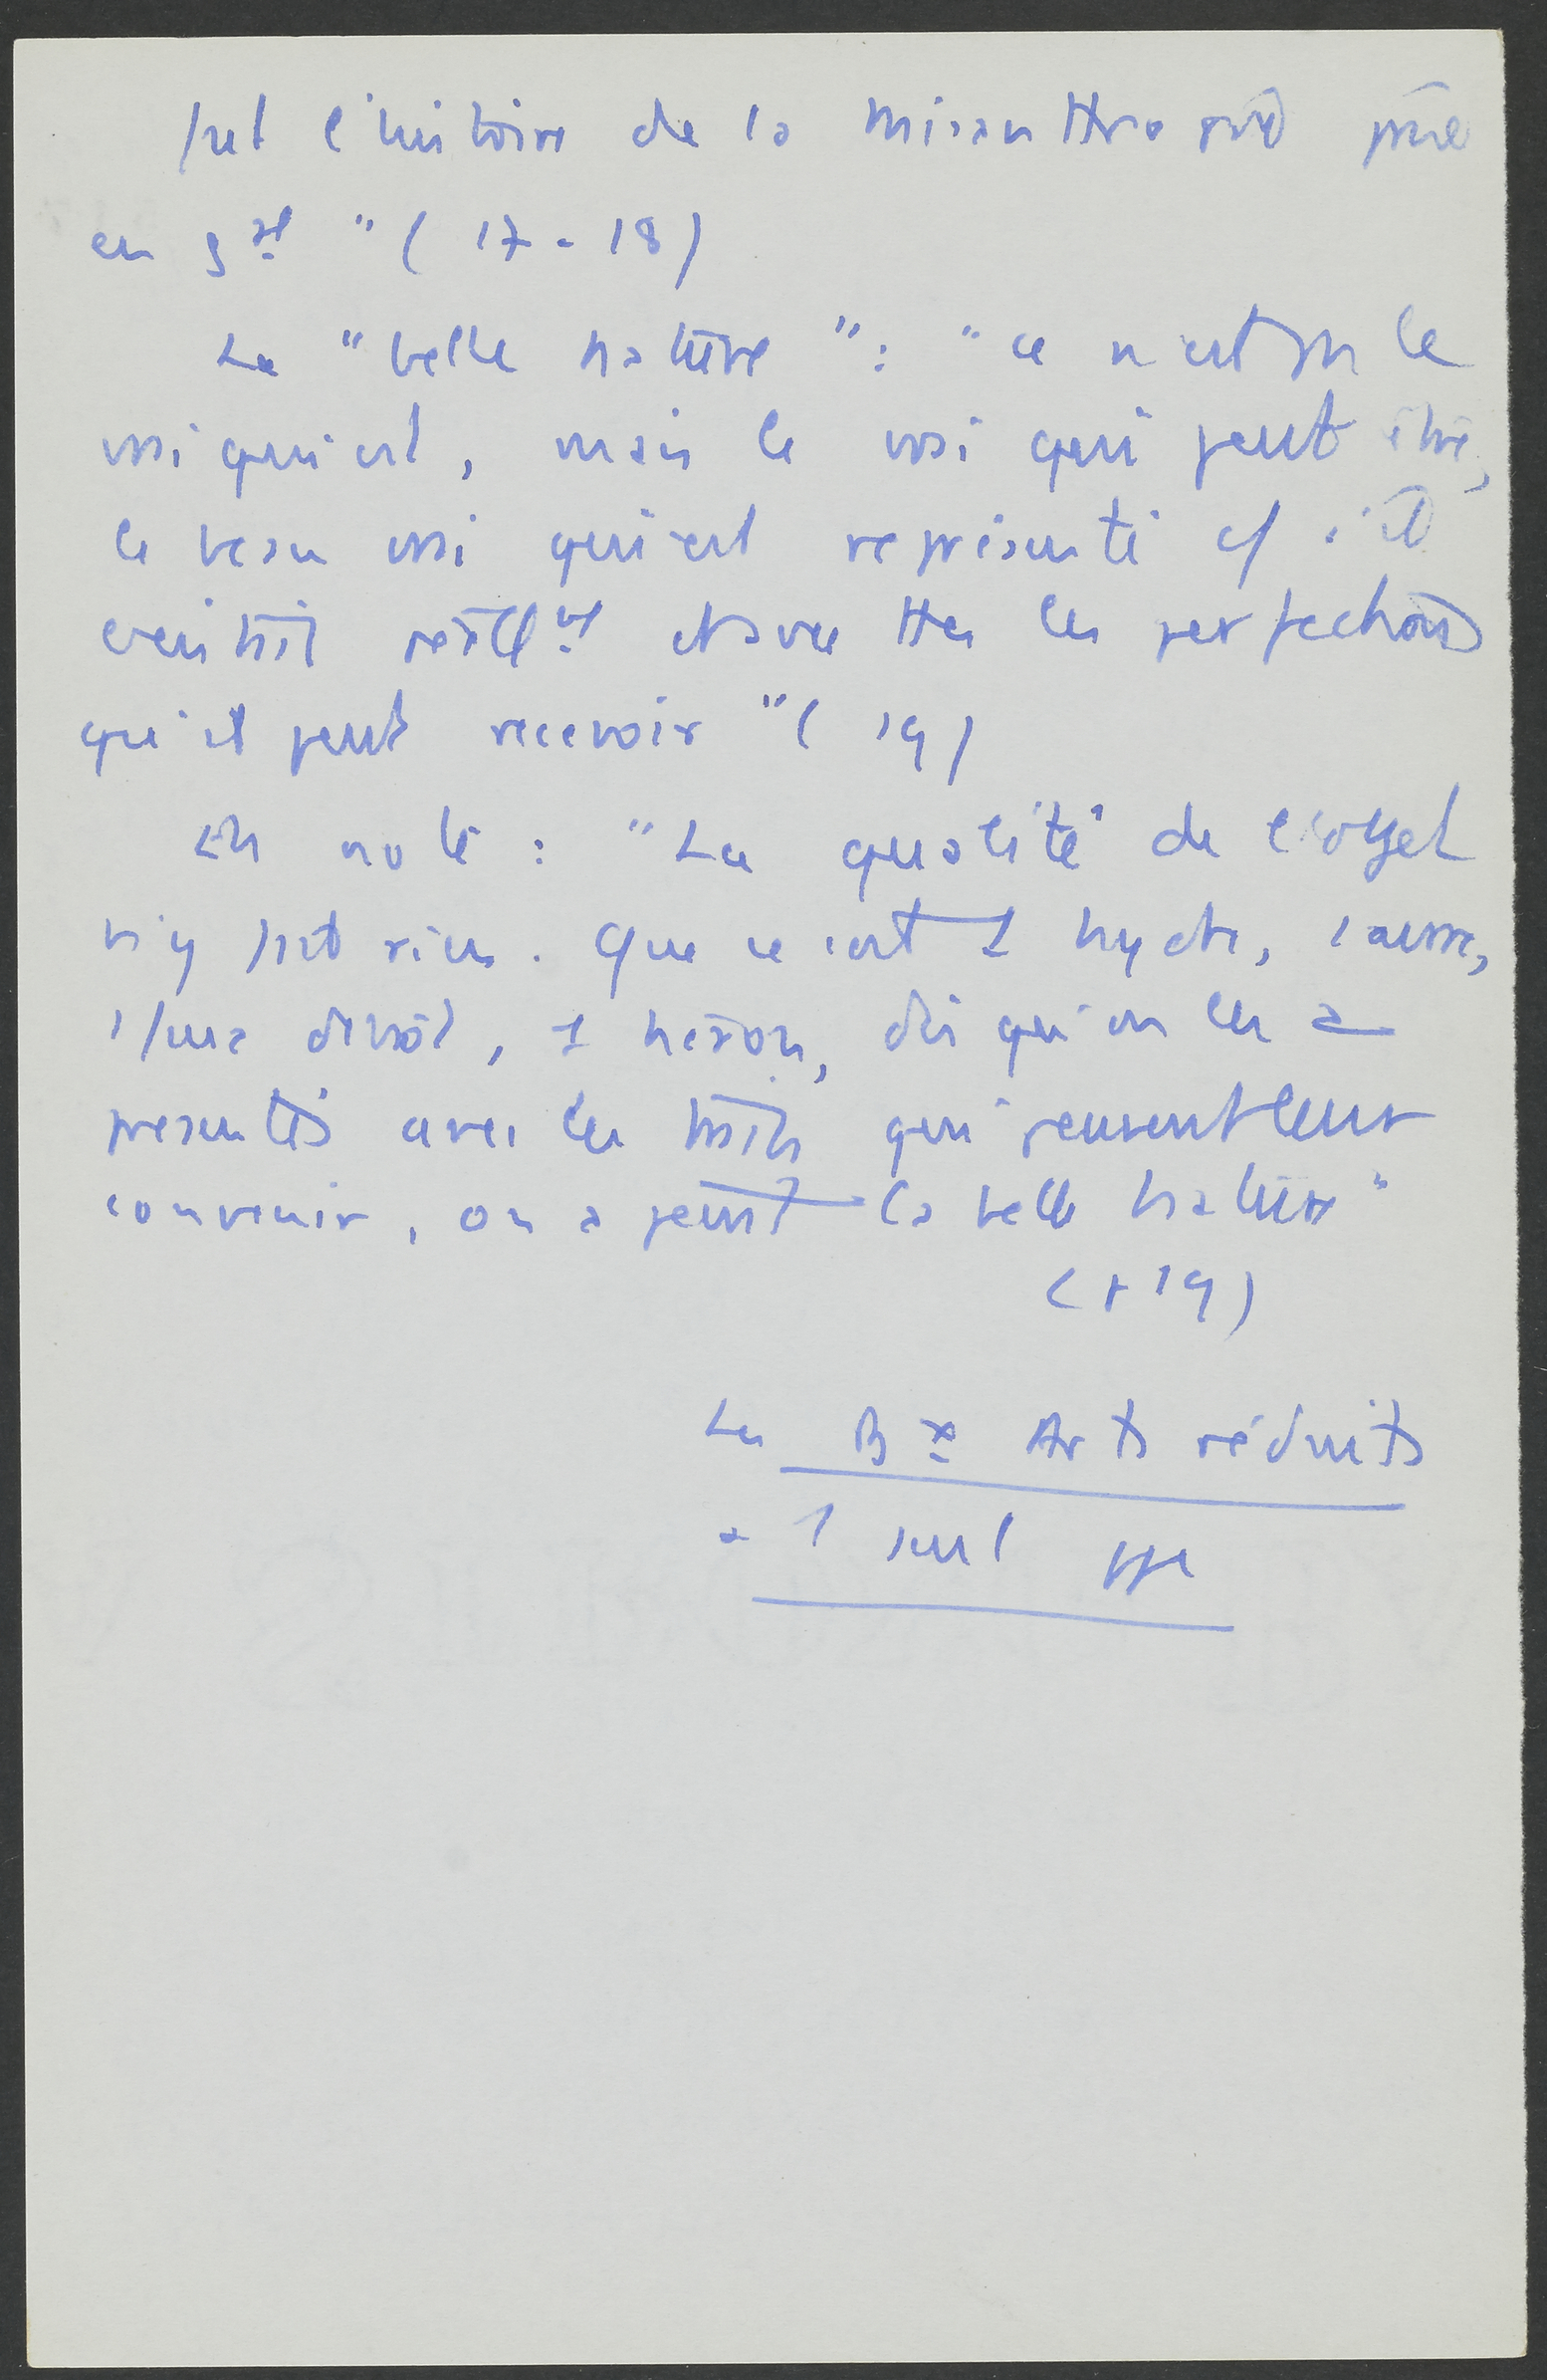 fait l'histoire de la misanthropie prise
en gal " (17-18)
La "belle nature" : "ce n'est pas le
vrai qui est, mais le vrai qui peut être,
le beau vrai qui est représenté c/ s'il
existait réellmt et avec ttes les perfections
qu'il peut recevoir" (19)
En note : "La qualité de l'objet
n'y fait rien. Que ce soit 1 hydre, 1 avare,
1 faux dévot, 1 Néron, dès qu'on les a
présentés avec les traits qui peuvent leur
convenir, on a peint la belle nature"
(p 19)
Les Bx Arts réduits
à 1 seul ppe